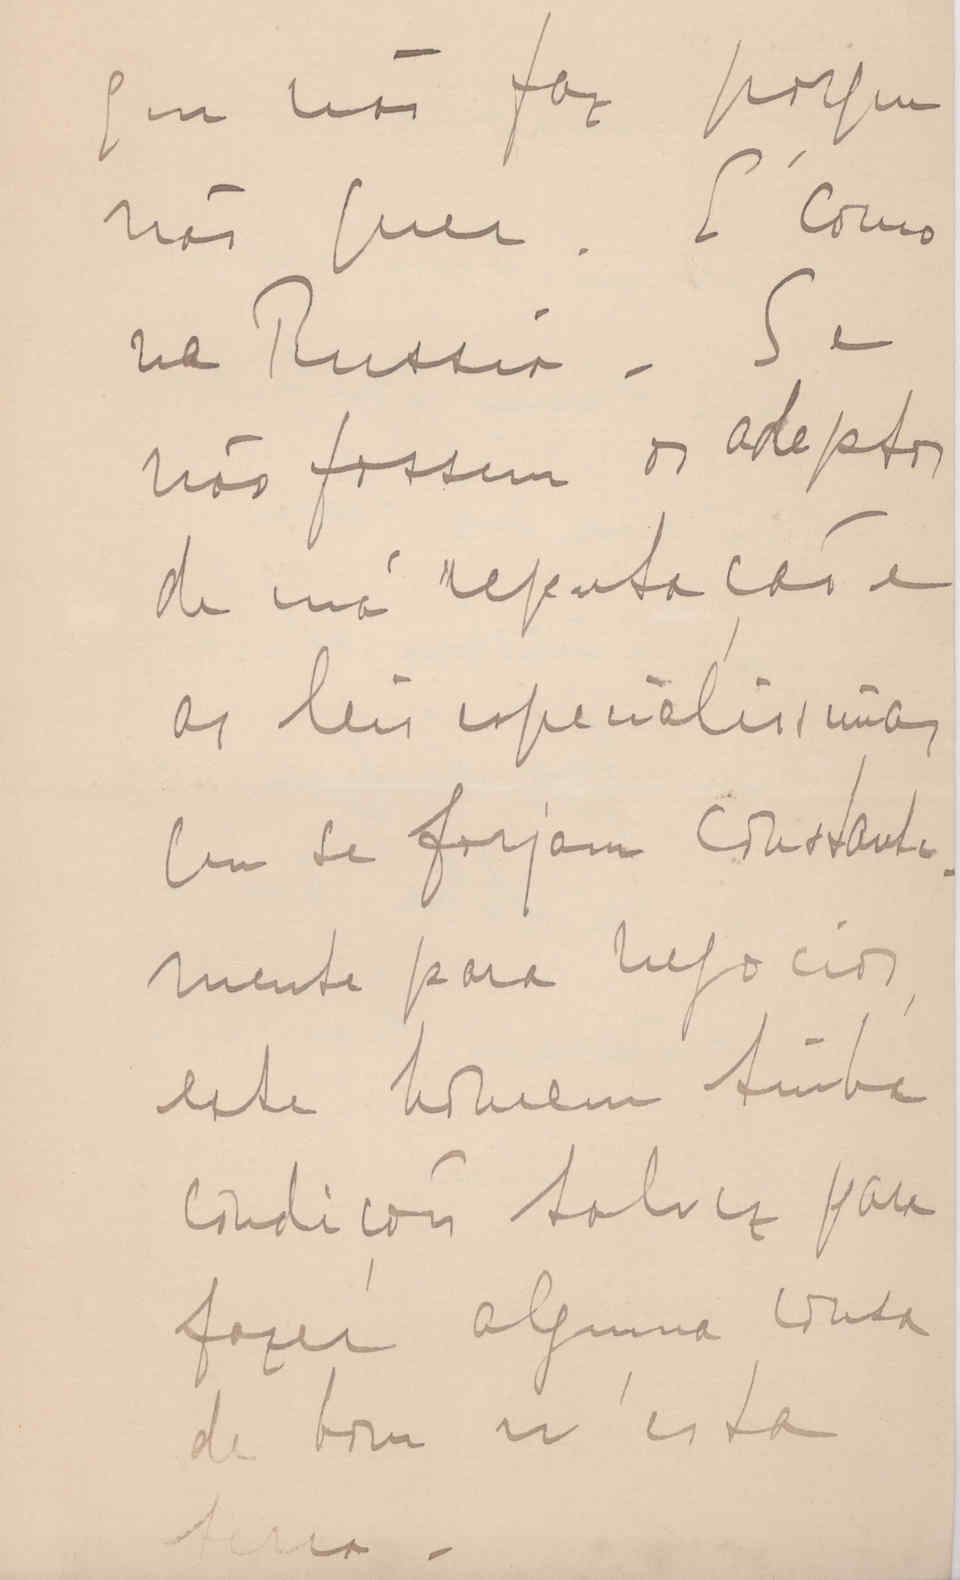 que não faz porque
não quer. É como
na Russia - Se
não fossem os adeptos
de má reputação e
as leis especialissimas
que se forjam constante-
mente para negocios,
este homem tinha
condições talvez para
fazer alguma cousa
de bom n'esta
terra -